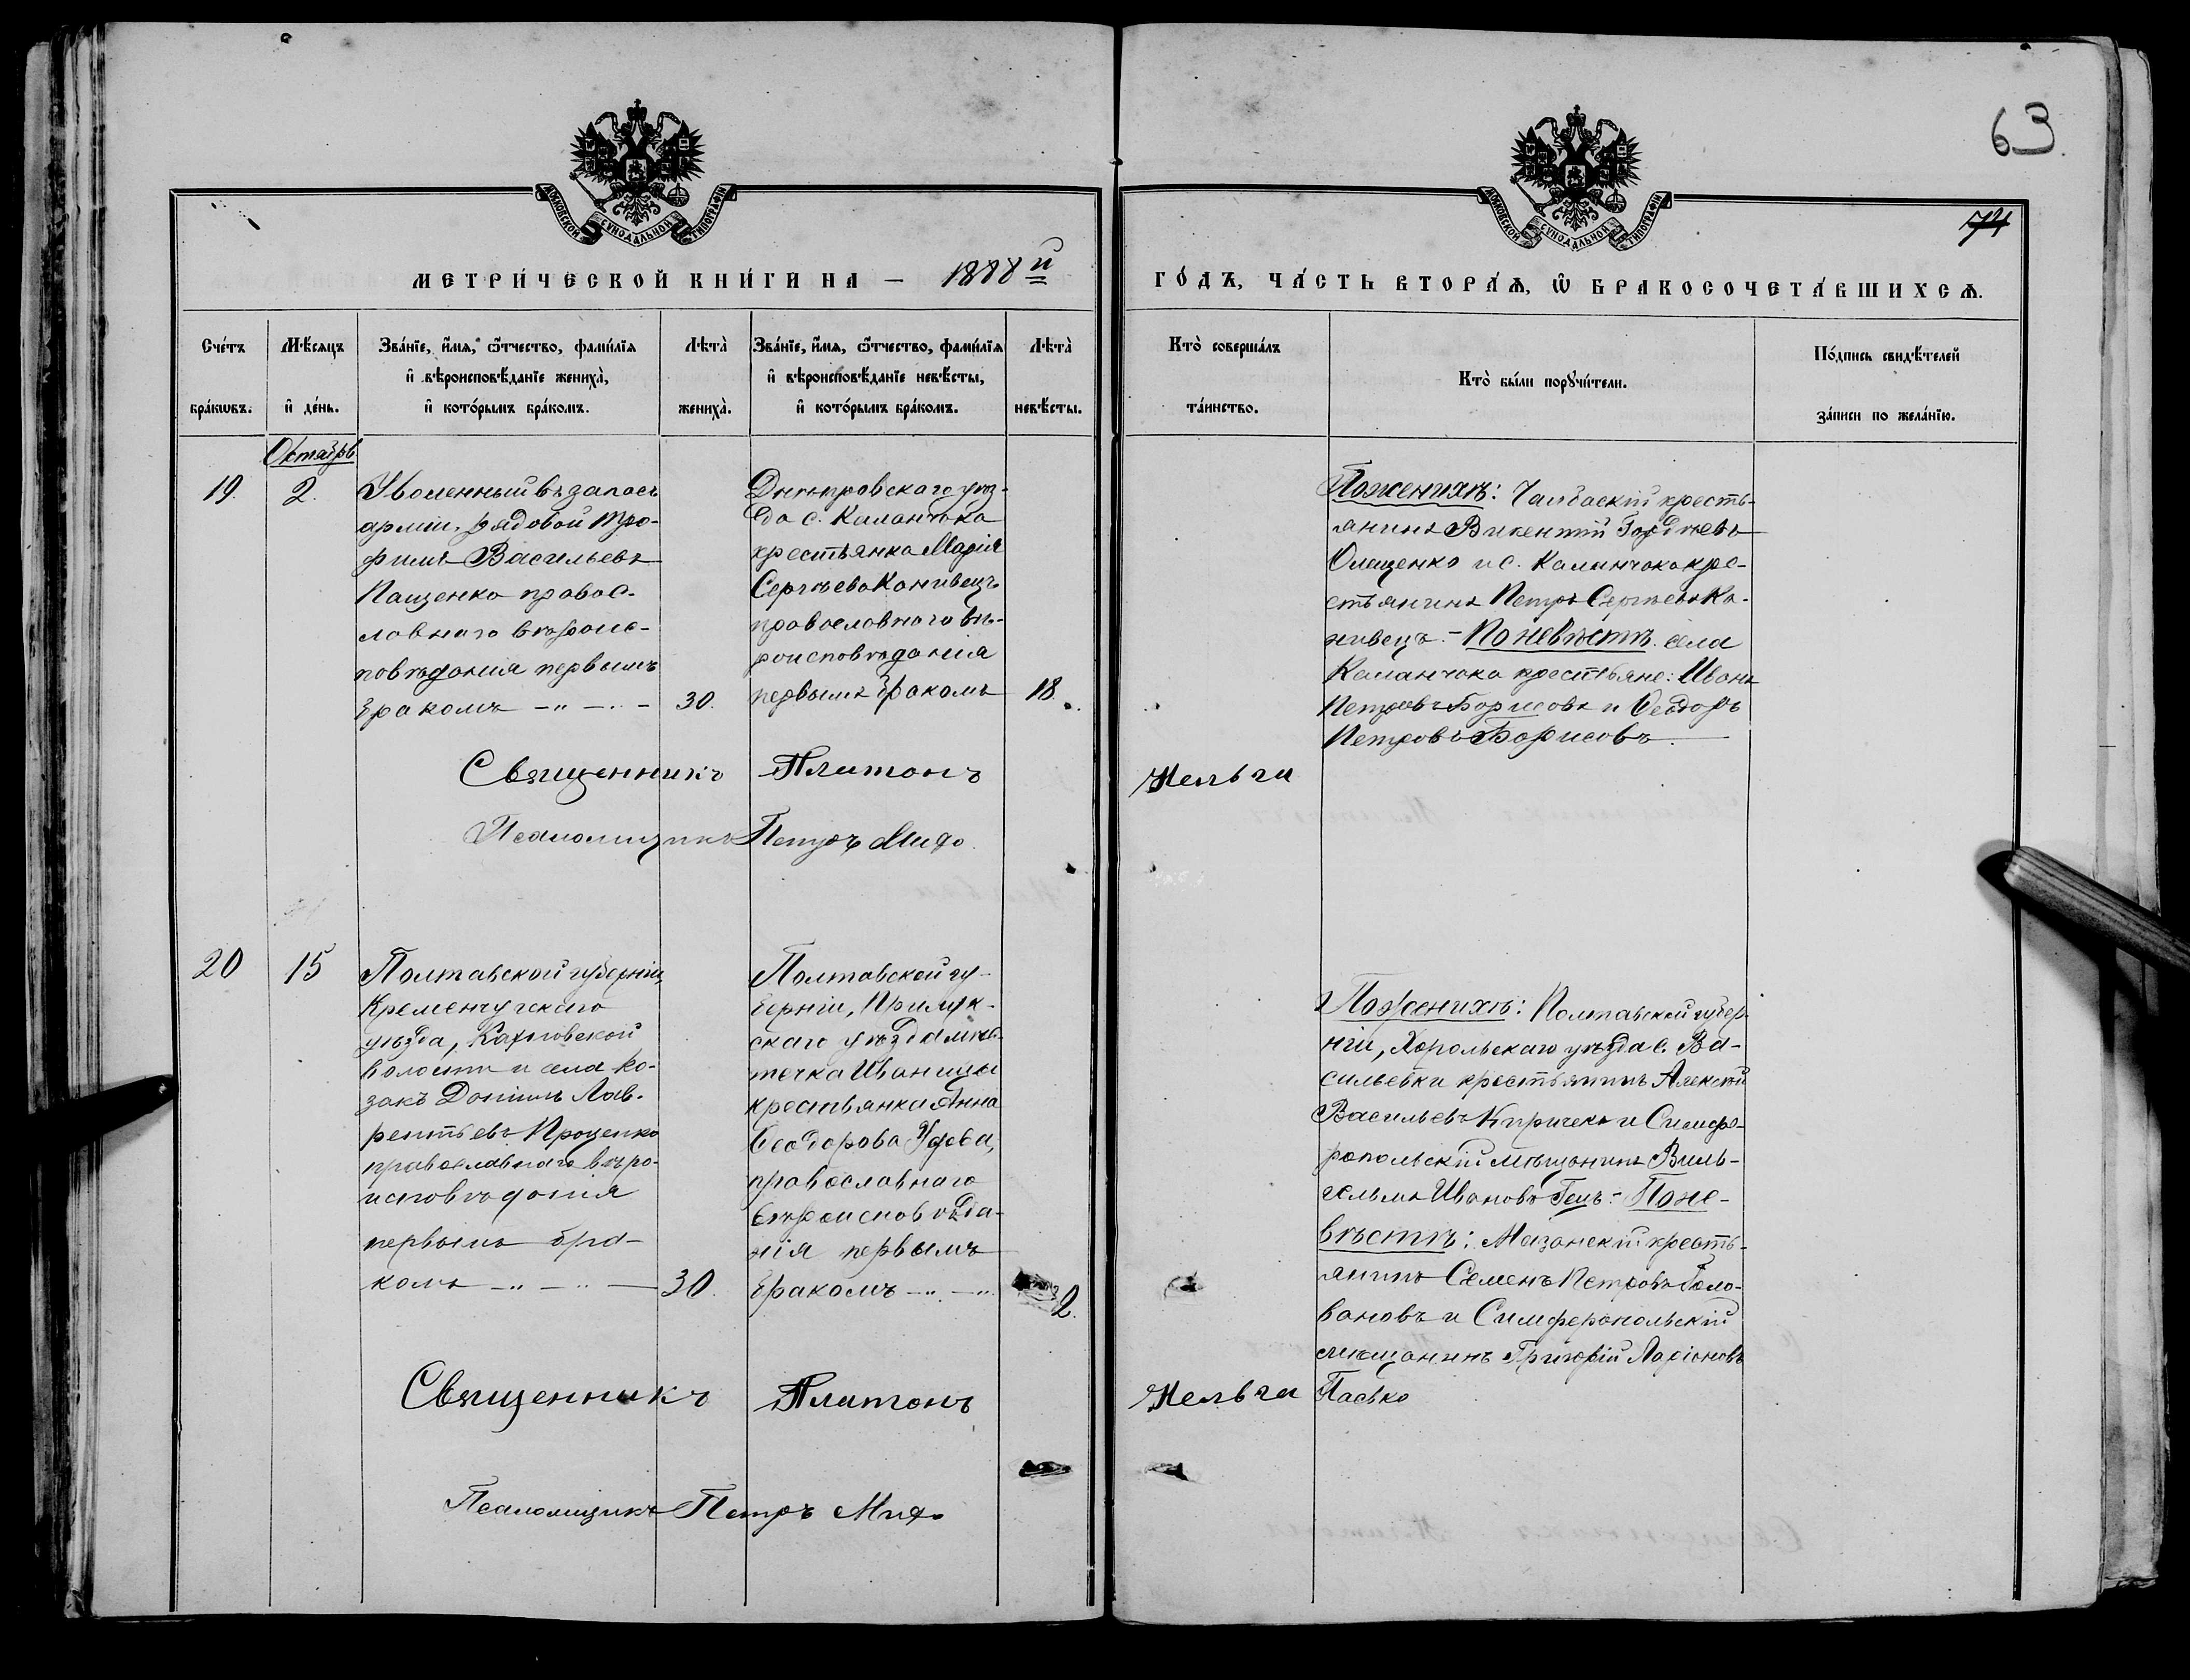 63
МОСКОВСКОЙ СѴНОДАЛЬНОЙ ТИПОГРАФІИ
МОСКОВСКОЙ СѴНОДАЛЬНОЙ ТИПОГРАФІИ
74
МЕТРИ́ЧЕСКОЙ КНИ́ГИ НА — 1888й
ГО́ДЪ, ЧА́СТЬ ВТОРА́Ѧ, Ѡ҆ БРАКОСОЧЕТА́ВШИХСѦ.
Сче́тъ бра́кѡвъ.
Мѣ́сѧцъ и҆ де́нь.
Зва́нїе, и҆́мѧ, ѻ҆́тчество, фамѝлїѧ
и҆ вѣроисповѣ́данїе жениха̀,
и҆ кото́рымъ бра́комъ.
Лѣта̀ жениха̀.
Зва́нїе, и҆́мѧ, ѻ҆́тчество, фамѝлїѧ
и҆ вѣроисповѣ́данїе невѣ́сты,
и҆ кото́рымъ бра́комъ.
Лѣта̀ невѣ́сты.
Кто̀ соверша́лъ та́инство.
Кто̀ бы́ли порꙋчи́тели.
По́дпись свидѣ́телей
за́писи по жела́нїю.
Октябрь
19.
2.
Уволенный въ запасъ
арміи, рядовой Тро-
фимъ Васильевъ
Пащенко правос-
лавнаго вѣроис-
повѣданія первымъ
бракомъ
30.
Днѣпровскаго уѣз-
да с. Каланчака
крестьянка Марія
Сергѣева Канивецъ
православнаго вѣ-
роисповѣданія
первымъ бракомъ
18.
По женихѣ: Чалбаскій кресть-
янинъ Викентій Гордѣевъ
Олещенко и с. Каланчака кре-
стьянинъ Петръ Сергѣевъ Ка-
нивецъ. - По невѣстѣ: села
Каланчака крестьяне: Иванъ
Петровъ Борисовъ и Ѳеодоръ
Петровъ Борисовъ.
Священникъ Платонъ Мельги
Псаломщикъ Петръ
20
15
Полтавской губерніи,
Кременчугскаго
уѣзда,
волости и села ко-
закъ Даніилъ Лав-
рентьевъ Проценко
православнаго вѣро-
исповѣданія
первымъ бра-
комъ
30.
Полтавской гу-
берніи, Прилук-
скаго уѣзда мѣс-
течка Иваницы
крестьянка Анна
Ѳеодорова
православнаго
вѣроисповѣда-
нія первымъ
бракомъ
По женихѣ: Полтавской губер-
ніи, Хорольскаго уѣзда с. Ва-
сильевки крестьянинъ Алексѣй
Васильевъ Киричекъ и Симфе-
ропольскій мѣщанинъ Виль-
гельмъ Ивановъ Гецъ. - По не-
вѣстѣ: Мазанскій кресть-
янинъ Семенъ Петровъ Голо-
вановъ и Симферопольскій
мѣщанинъ Григорій Ларіоновъ
Пасько
Священникъ Платонъ Мельги
Псаломщикъ Петръ